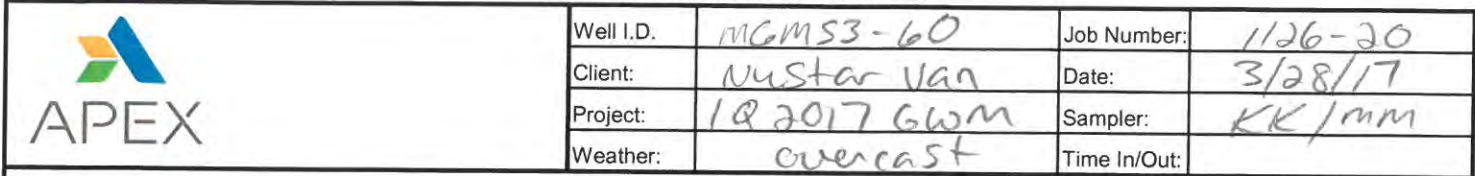 Well I.D. MGMS3-60 Job Number: 1126-20
Client: NuStar Van Date: 3/28/17
APEX Project: 1Q 2017 GWM Sampler: KK/MM
Weather: overcast Time In/Out: